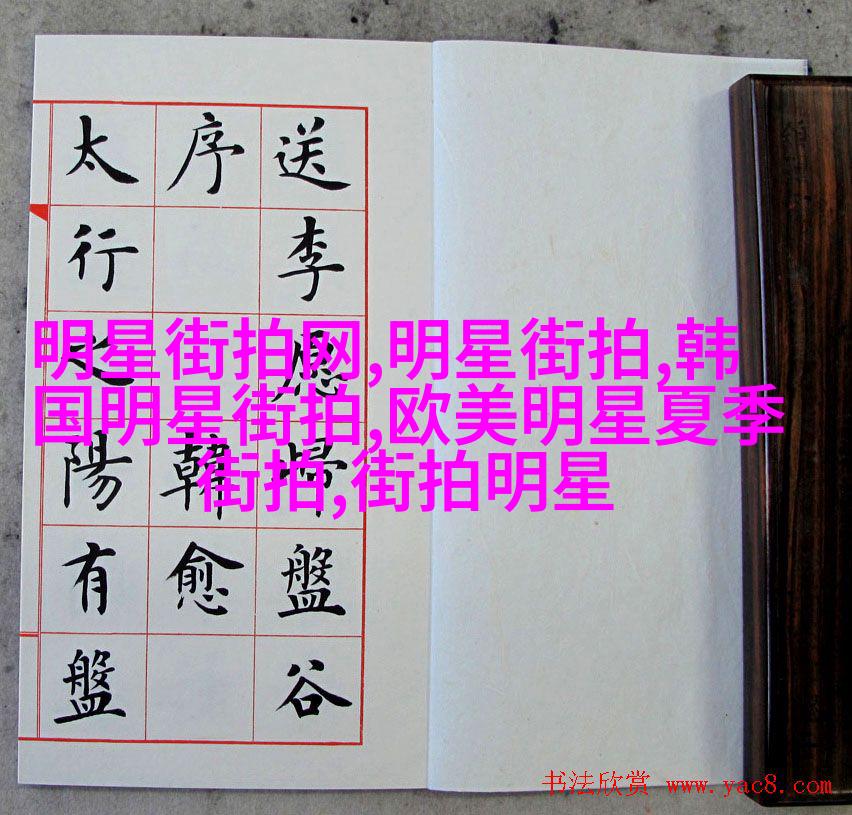 送李愿歸盤谷
序 韓愈
太行之陽有盤
明星街拍网,明星街拍,韩
国明星街拍,欧美明星夏季
街拍,街拍明星
书法欣赏 www.yac8.com